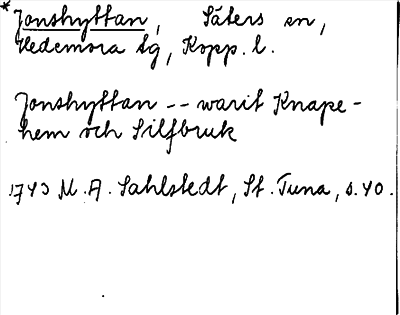 *Jonshyttan, Säters sn,
Hedemora tg, Kopp. l.
Jonshyttan -- warit Knape-
hem och Silfbruk
1743 M. A. Sahlstedt, St. Tuna, s. 40.